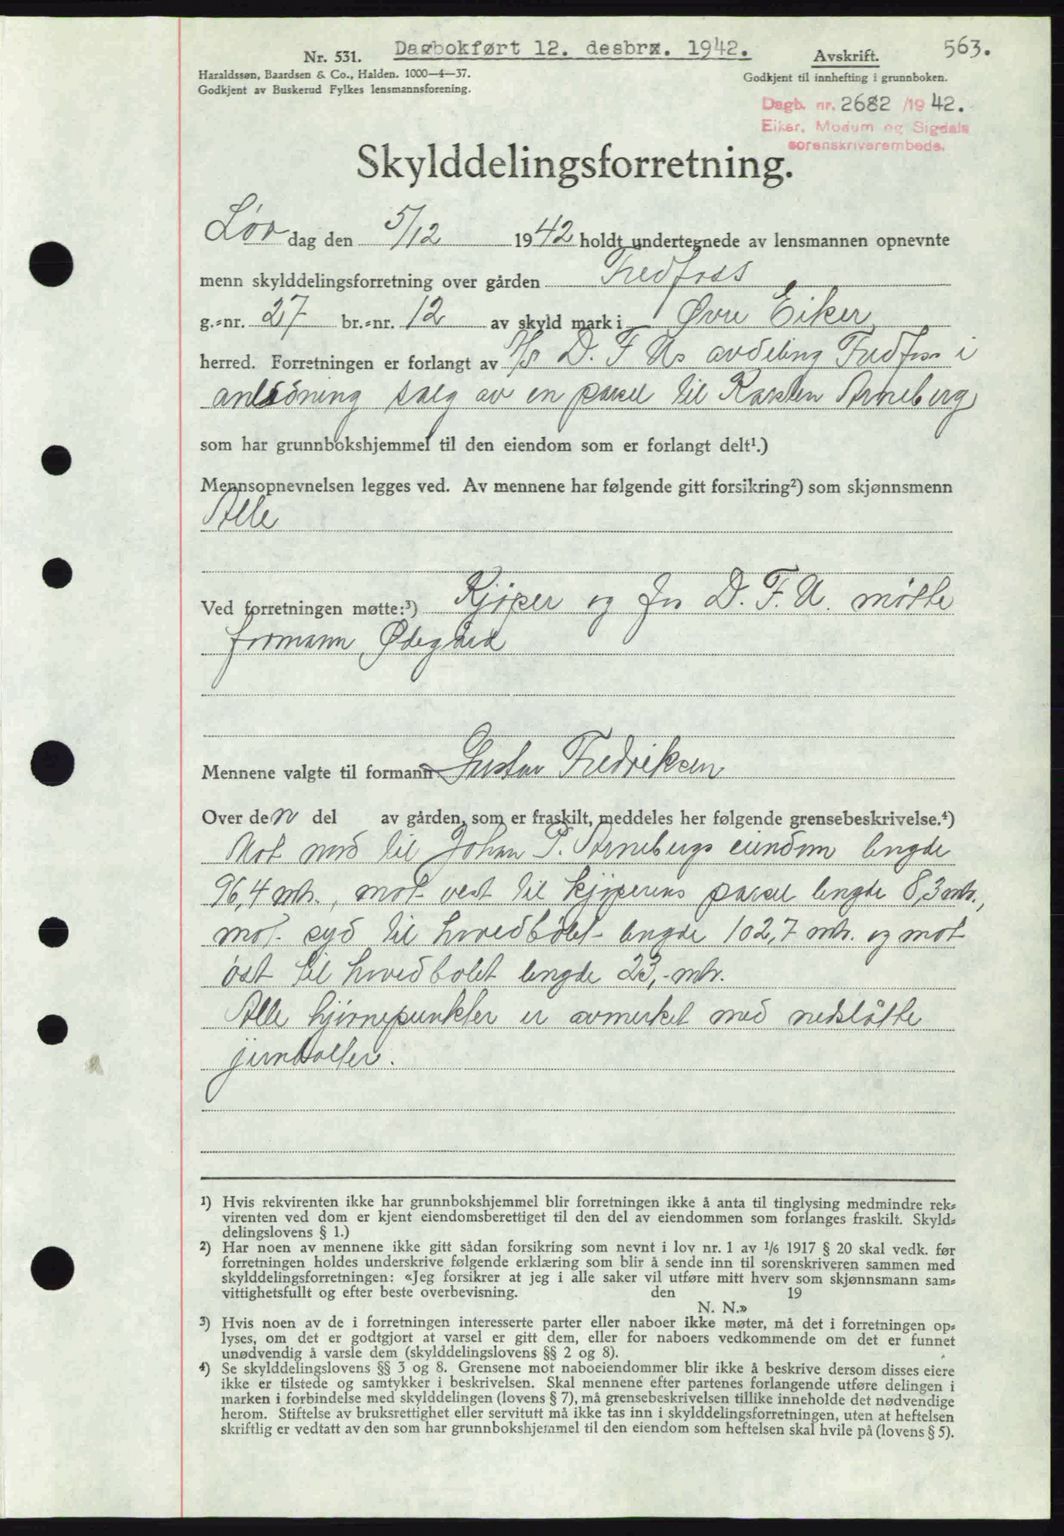 Nr. 531.
Dagbokført 12. desbrx. 1942.
Avskrift.
563.
Haraldssøn, Baardsen & Co., Halden. 1000—4—37.
Godkjent av Buskerud Fylkes lensmannsforening.
Godkjent til innhefting i grunnboken.
Dagb. nr. 2682 /19 42.
Eiker, Modum og Sigdals
sorenskriverembede.
Skylddelingsforretning.
Lør dag den 5/12 1942 holdt undertegnede av lensmannen opnevnte
menn skylddelingsforretning over gården Fredfoss
g.-nr. 27 br.-nr. 12 av skyld mark i Øvre Eiker
herred. Forretningen er forlangt av A/S D. F. Us avdeling Fredfoss i
anledning salg av en parsel til Karsten Arneberg
som har grunnbokshjemmel til den eiendom som er forlangt delt¹.)
Mennsopnevnelsen legges ved. Av mennene har følgende gitt forsikring²) som skjønnsmenn
Alle
Ved forretningen møtte:³) Kjøper og for D. F. U. møtte
formann Ødegård
Mennene valgte til formann Gustav Fredriksen
Over den del av gården, som er fraskilt, meddeles her følgende grensebeskrivelse.⁴)
Mot nord til Johan P. Arnebergs eiendom lengde
96,4 mtr., mot vest til kjøperens parsel lengde 8,3 mtr.,
mot syd til hovedbølet lengde 102,7 mtr. og mot
øst til hovedbølet lengde 23,- mtr.
Alle hjørnepunkter er avmerket med nedslåtte
jernbolter.
¹) Hvis rekvirenten ikke har grunnbokshjemmel blir forretningen ikke å anta til tinglysing medmindre rek-
virenten ved dom er kjent eiendomsberettiget til den del av eiendommen som forlanges fraskilt. Skyld-
delingslovens § 1.)
²) Har noen av mennene ikke gitt sådan forsikring som nevnt i lov nr. 1 av 1/6 1917 § 20 skal vedk. før
forretningen holdes underskrive følgende erklæring som blir å sende inn til sorenskriveren sammen med
skylddelingsforretningen: «Jeg forsikrer at jeg i alle saker vil utføre mitt hverv som skjønnsmann sam-
vittighetsfullt og efter beste overbevisning. den 19
N. N.»
³) Hvis noen av de i forretningen interesserte parter eller naboer ikke møter, må det i forretningen op-
lyses, om det er godtgjort at varsel er gitt dem, eller for naboers vedkommende om det er funnet
unødvendig å varsle dem (skylddelingslovens §§ 2 og 8).
⁴) Se skylddelingslovens §§ 3 og 8. Grensene mot naboeiendommer blir ikke å beskrive dersom disses eiere
ikke er tilstede og samtykker i beskrivelsen. Skal mennene efter partenes forlangende utføre delingen i
marken i forbindelse med skylddelingen (lovens § 7), må grensebeskrivelsen tillike inneholde det nødvendige
herom. Stiftelse av bruksrettighet eller servitutt må ikke tas inn i skylddelingsforretningen, uten at heftelsen
skriftlig er vedtatt av den som har grunnbokshjemmel til den eiendom som heftelsen skal hvile på (lovens § 5).